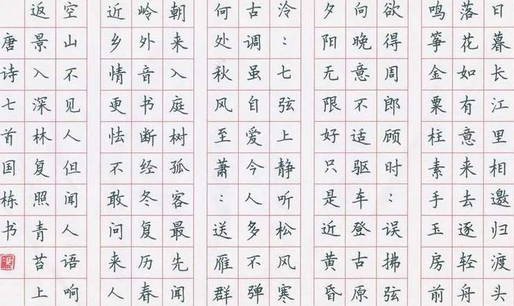 日暮长江里相邀归渡头
落花如有意来去逐轻舟
鸣筝金粟柱素手玉房前
欲得周郎顾时：误拂弦
向晚意不适驱车登古原
夕阳无限好只是近黄昏
泠：七弦上静听松风寒
古调虽自爱今人多不弹
何处秋风至萧：送雁群
朝来入庭树孤客最先闻
岭外音书断经冬复历春
近乡情更怯不敢问来人
空山不见人但闻人语响
返景入深林复照青苔上
唐诗七首国栋书